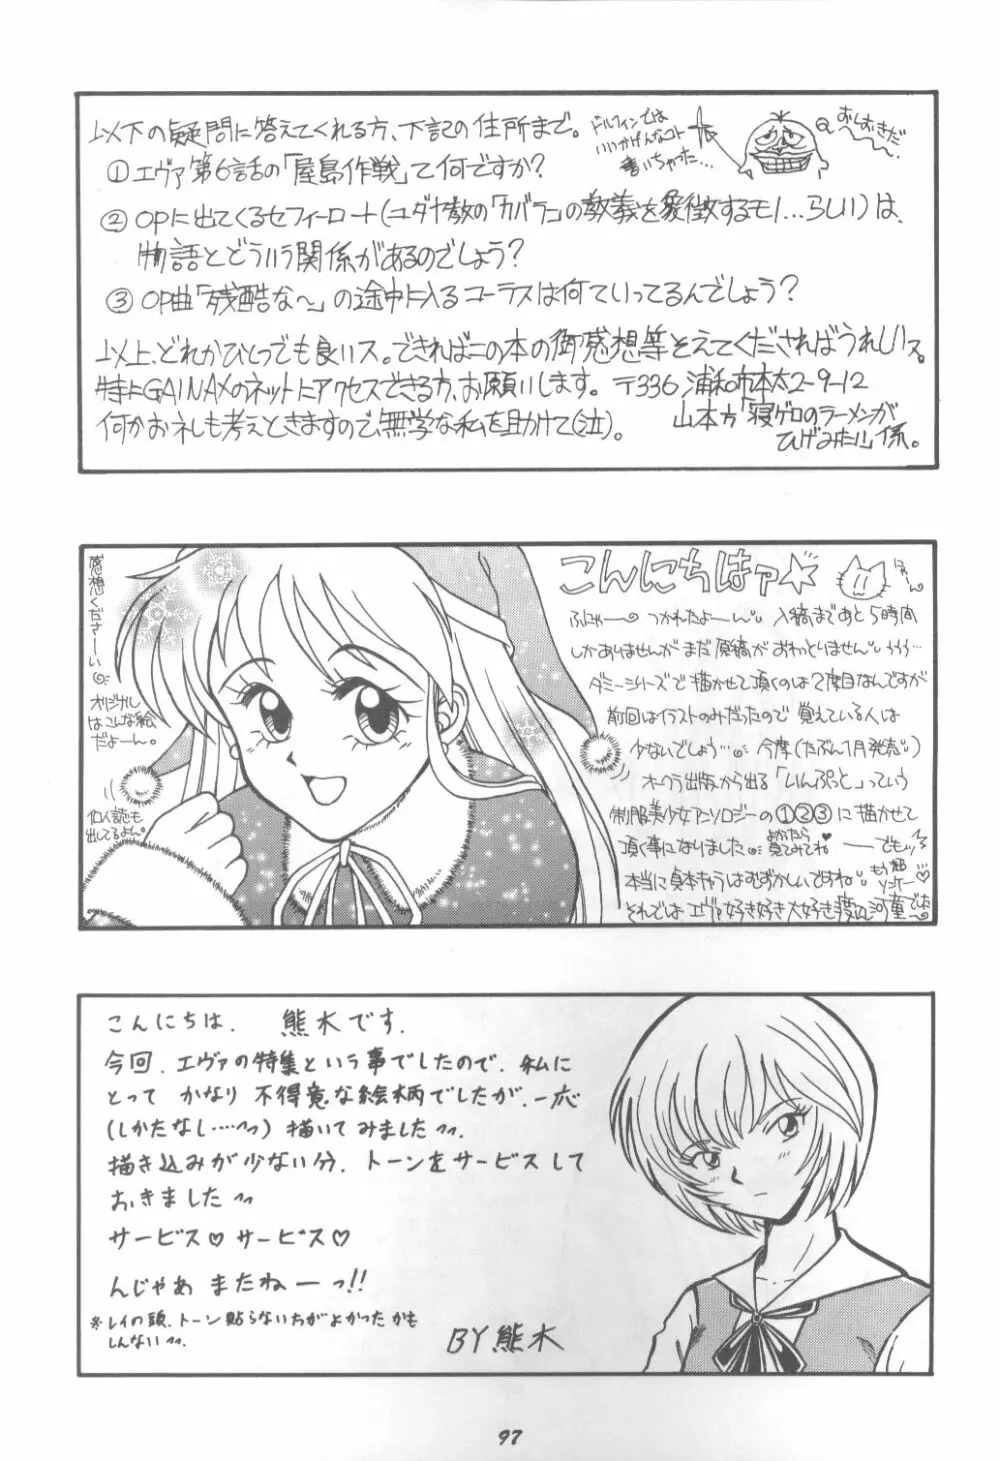 以下の疑問に答えてくれる方、下記の住所まで。
ドルフィンでは
いいかげんなコト
書いちゃった…
おしおきだ
①エヴァ第6話の「屋島作戦」て何ですか?
②OPに出てくるセフィーロート(ユダヤ教の「カバラ」の教義を象徴するモノ…らしい)は、
物語とどういう関係があるのでしょう?
③OP曲「残酷な〜」の途中に入るコーラスは何ていってるんでしょう?
以上、どれかひとつでも良いス。できればこの本の御感想等そえてくださればうれしいス。
特にGAINAXのネットにアクセスできる方、お願いします。〒336 浦和市本太2-9-12
何かおネしも考えときますので、無学な私を助けて(泣)。山本方「寝ゲロのラーメンが
ひげみたい」係。
感想くださーい
オリジナル
はこんな絵
だよーん。
個人誌も
出してるよん。
こんにちはァ☆
ふにゃー〜 つかれたよーん。入稿まであと5時間
しかありませんがまだ原稿がおわとりません。…
ダミーシリーズで描かせて頂くのは2度目なんですが
前回はイラストのみだったので覚えている人は
少ないでしょう… 今度(たぶん1月発売。)
オークラ出版から出る「いんぷっと」っていう
制服美少女アンソロジーの①②③に描かせて
頂く事になりました よかたら見てみてね♥ ――でもッ
本当に貞本キャラはむずかしいですね。
それでは エヴァ好き好き大好き 河童でした
こんにちは. 熊木です.
今回. エヴァの特集という事でしたので. 私に
とって かなり 不得意な絵柄でしたが. 一応
(しかたなし…〃) 描いてみました〃.
描き込みが少ない分. トーンをサービスして
おきました〃
サービス♡ サービス♡
んじゃあ またねーっ!!
※レイの頭. トーン貼らないちがよかったかも
しんない〃.
BY熊木
97